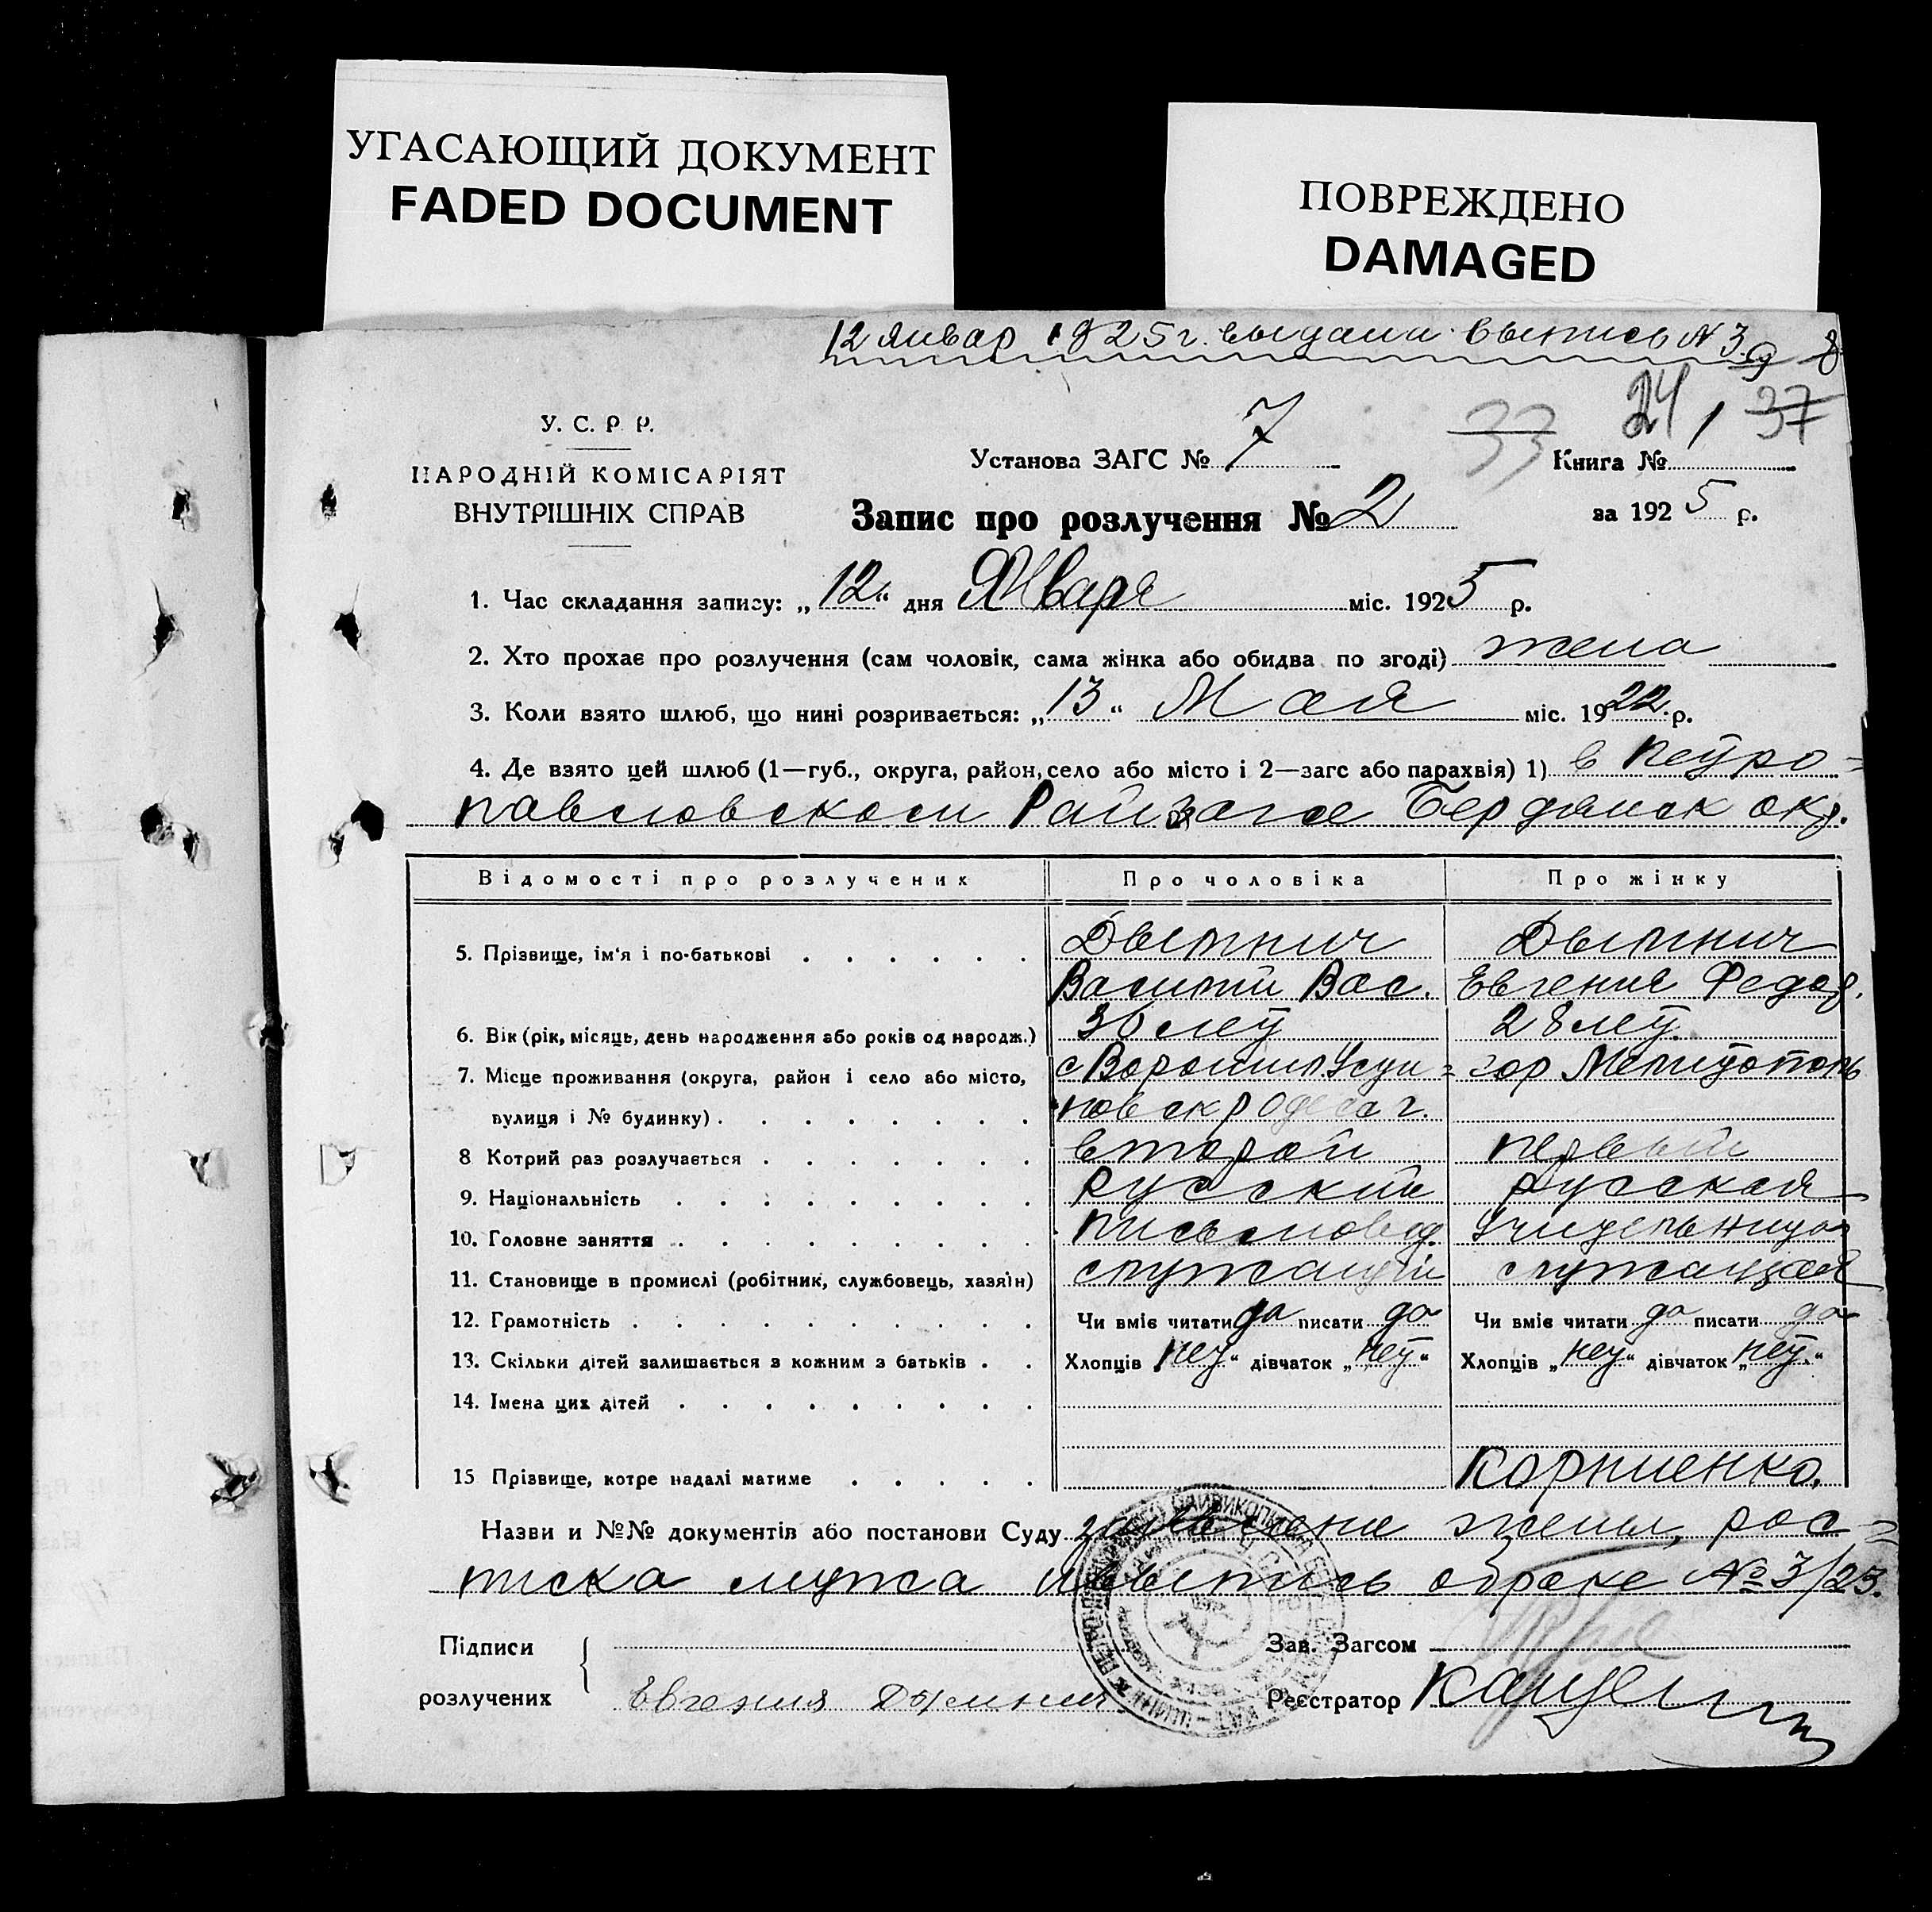 УГАСАЮЩИЙ ДОКУМЕНТ
FADED DOCUMENT
ПОВРЕЖДЕНО
DAMAGED
12 Январ 1925 г. выдана выпись № 3
У. С. Р. Р.
НАРОДНІЙ КОМІСАРІЯТ
ВНУТРІШНІХ СПРАВ
Установа ЗАГС № 7
33 24 / 37
Книга №
Запис про розлучення № 2
за 1925 р.
1. Час складання запису: „12“ дня Января міс. 1925 р.
2. Хто прохає про розлучення (сам чоловік, сама жінка або обидва по згоді) жена
3. Коли взято шлюб, що нині розривається: „13“ Мая міс. 1922 р.
4. Де взято цей шлюб (1—губ., округа, район, село або місто і 2—загс або парахвія) 1) в Петро=
павловском Райзагсе Бердянск окр.
Відомості про розлучених Про чоловіка Про жінку
5. Прізвище, ім'я і по-батькові Дымнич Дымнич
Василий Вас. Евгения Федор.
6. Вік (рік, місяць, день народження або років од народж.) 30 лет 28 лет.
7. Місце проживання (округа, район і село або місто, гор Мелитополь
вулиця і № будинку) новск р Одесс г.
8 Котрий раз розлучається второй первый
9. Національність Русский Русская
10. Головне заняття письмовод. Учительница
11. Становище в промислі (робітник, службовець, хазяїн) служащий служащая
12. Грамотність Чи вміє читати да писати да Чи вміє читати да писати да
13. Скільки дітей залишається з кожним з батьків Хлопців „нет“ дівчаток „нет“ Хлопців „нет“ дівчаток „нет.“
14. Імена цих дітей
15 Прізвище, котре надалі матиме Корниенко.
Назви и №№ документів або постанови Суду заявление жены, рас=
писка мужа и выпись о браке № 3/23.
Підписи Зав. Загсом
розлучених Евгения Дымнич Реєстратор